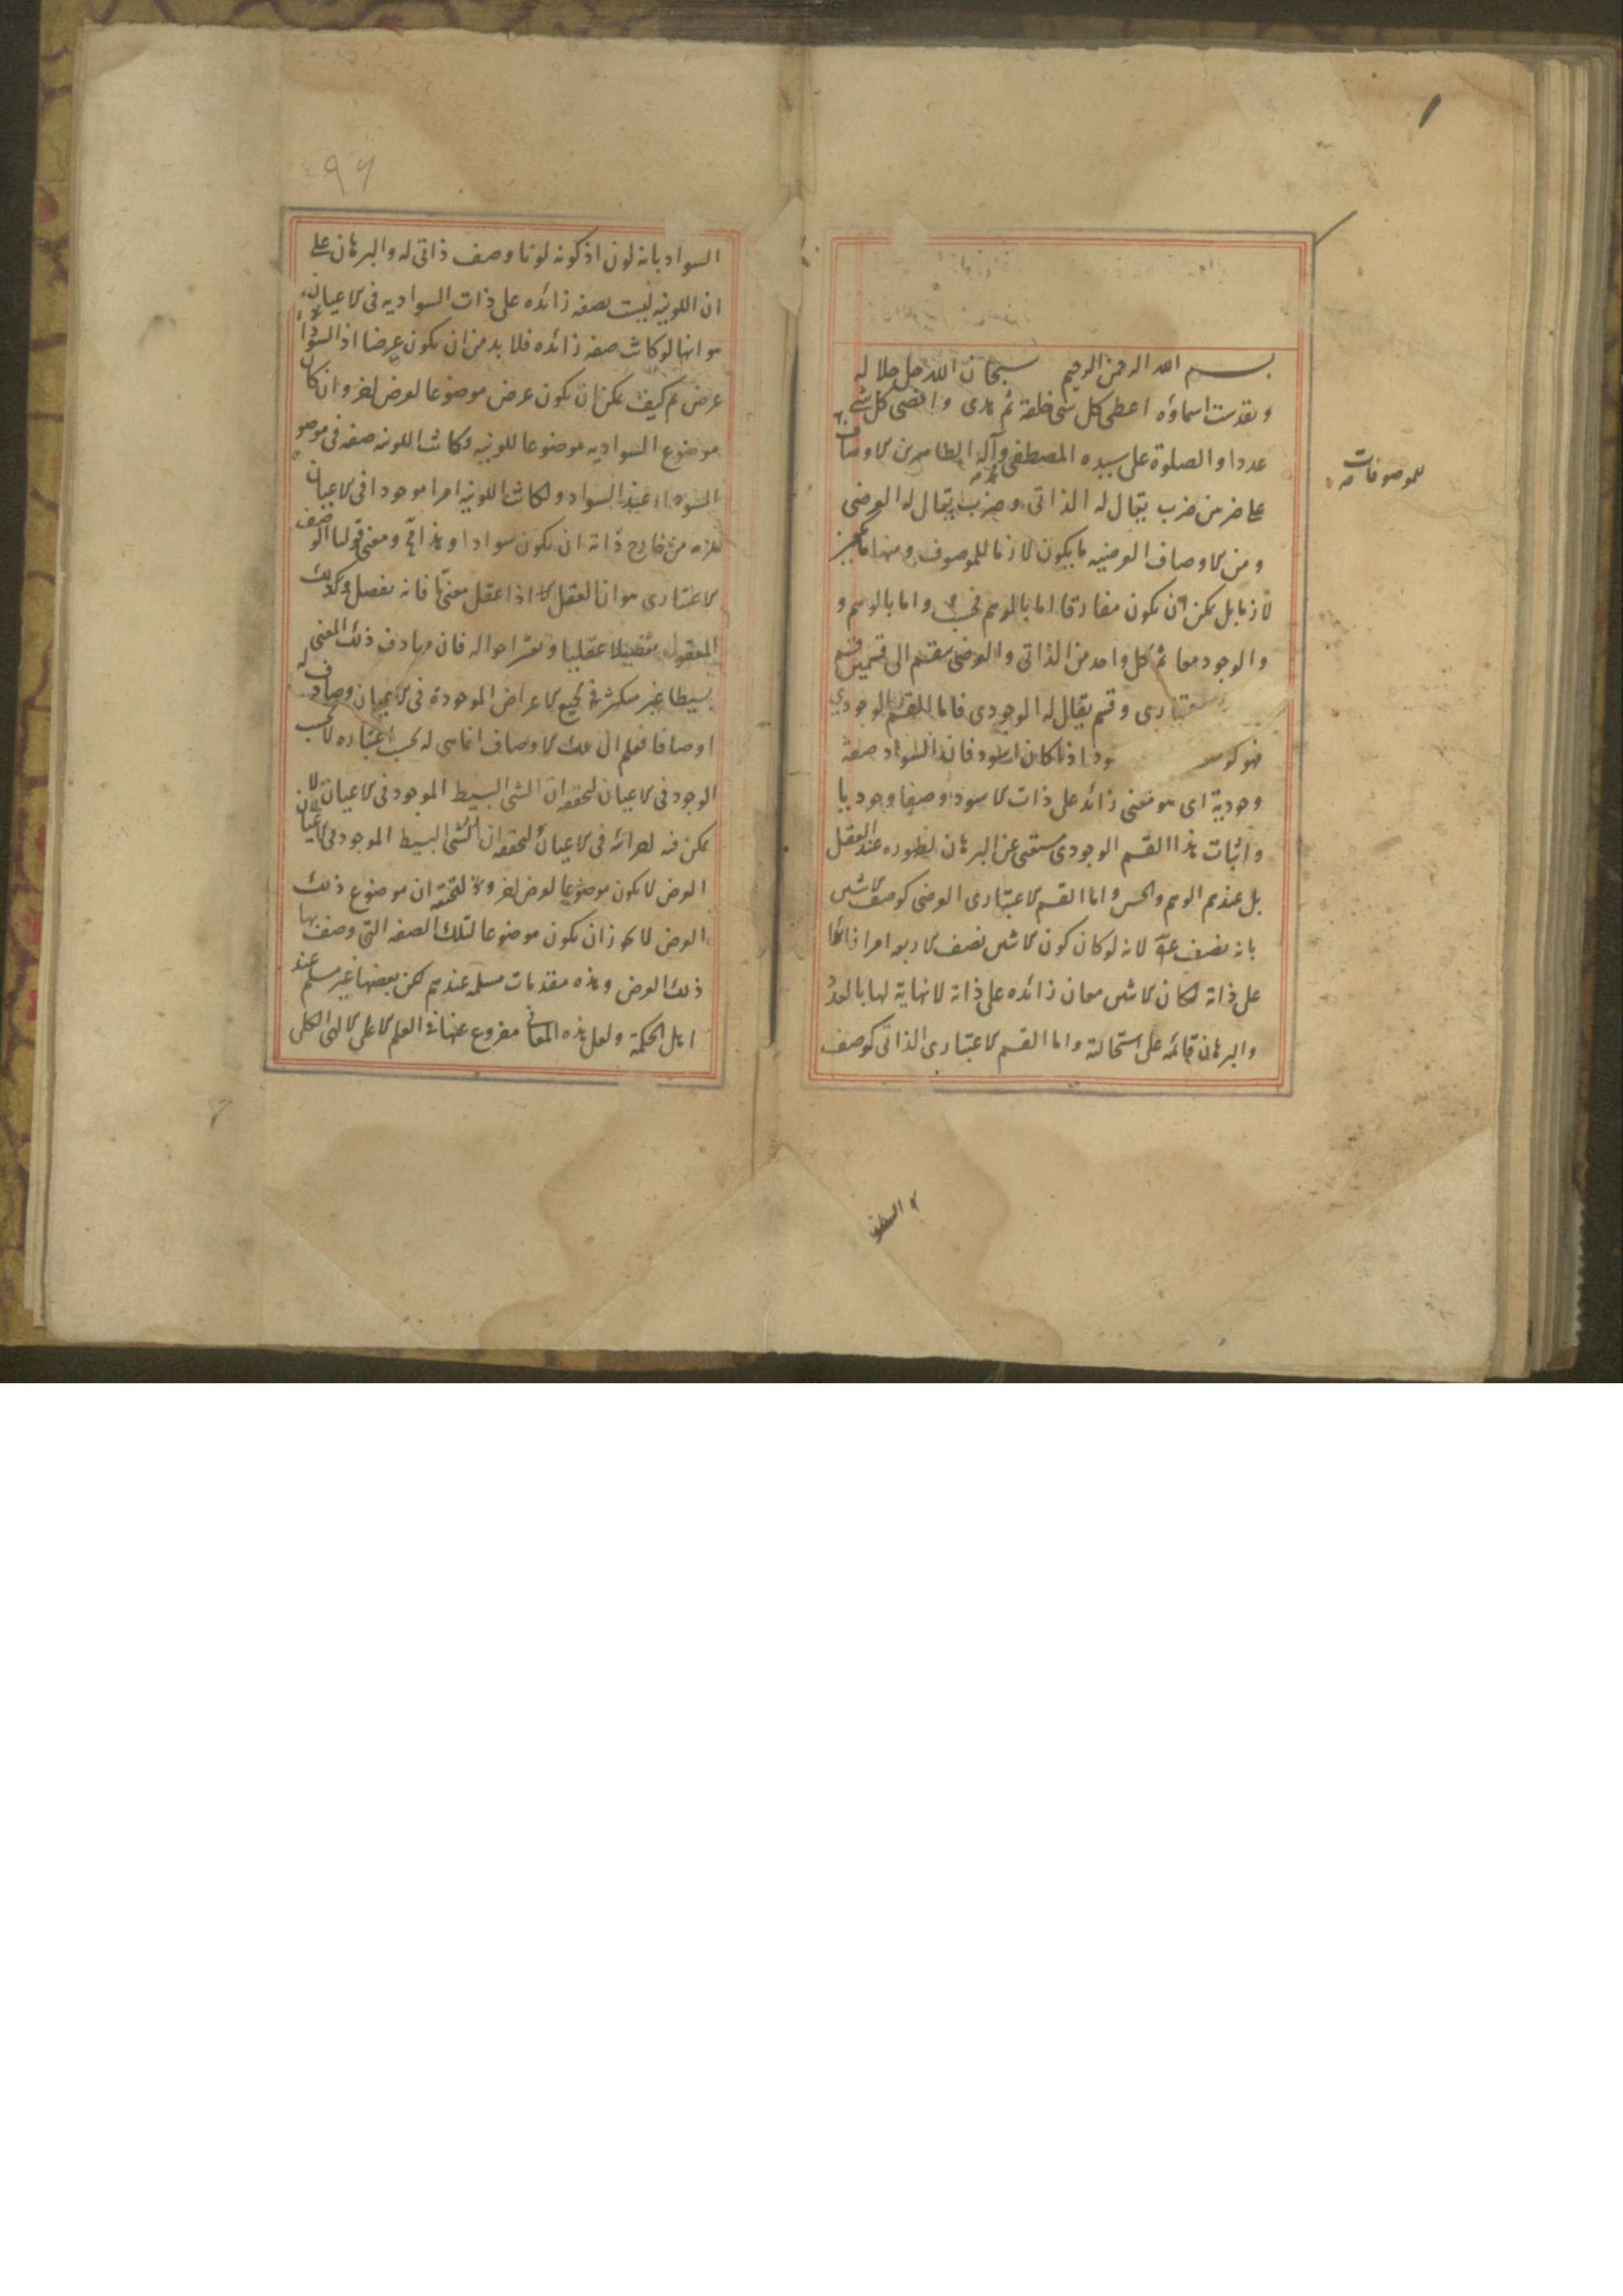 بسم الله الرحمن الرحيم سبحان الله جل جلاله
وتقدست اسماؤه اعطى كل شى خلقه ثم هدى واحصى كل شئ
عددا والصلوة على سيده المصطفى محمد وآله الطاهرين الاوصاف
للموصوفات
على ضربين ضرب يقال له الذاتى وضرب يقال له العرضى
ومن الاوصاف العرضيه ما يكون لازما للموصوف ومنها ما غير
لازما بل يمكن ان يكون مفارقا اما بالوهم واما بالوهم و
والوجود معا ثم كل واحد من الذاتى والعرضى منقسم الى قسمين قسم
وقسم يقال له الوجودى فاما القسم الوجودي
فهو اذا كان اسود فان السواد صفة
وجودية اى هو معنى زائد على ذات الاسود وصفا وجوديا
واثبات هذا القسم الوجودى مستغنى عن البرهان لظهوره عند العقل
بل عندهم الوهم والحس واما القسم الاعتبارى العرضى كوصف الاثنين
بانه نصف لانه لو كان كون الاثنين نصف الاربعه امرا زائدا
على ذاته لكان للاثنين معان زائده على ذاته لا نهاية لها بالعدد
والبرهان قائمه على استحالته واما القسم الاعتبارى الذاتى كوصف
٤٩٦
السواد بانه لون اذ كونه لونا وصف ذاتى له والبرهان على
ان اللونيه ليست بصفه زائده على ذات السواديه فى الاعيان
هو انها لو كانت صفه زائده فلا بد من ان يكون عرضا اذ السواد
عرض ثم كيف يمكن ان يكون عرض موضوعا لعرض اخر وان كان
موضوع السواديه موضوعا للونيه وكانت اللونيه صفه فى موضوع
السواد عند السواد ولكانت اللونيه امرا موجودا فى الاعيان
يلزمه من خارج ذاته ان يكون سوادا وهذا مح ومعنى قولنا الوصف
الاعتبارى هو ان العقل اذا عقل معنى ما فانه يفصل ذلك
المعقول تفصيلا عقليا ويعتبر احواله فان صادف ذلك المعنى
بسيطا غير متكثر فى جميع الاعراض الموجودة فى الاعيان وصادف له
اوصافا فعلم ان تلك الاوصاف انما هى له بحسب اعتباره لا بحسب
الوجود فى الاعيان لتحققه ان الشى البسيط الموجود فى الاعيان لا
يمكن فيه اجزائه فى الاعيان لتحققه ان الشى البسيط الموجود فى الاعيان
العرض لا يكون موضوعا لعرض اخر ولتحققه ان موضوع ذلك
العرض لا يجوز ان يكون موضوعا لتلك الصفه التى وصف بها
ذلك العرض وهذه مقدمات مسلمه عندهم لكن بعضها غير مسلم عند
اهل الحكمة ولعل هذه المعانى مفروغ عنها فى العلم الاعلى الالهى الكلى